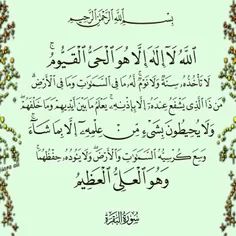 بِسْمِ اللَّهِ الرَّحْمَٰنِ الرَّحِيمِ
اللَّهُ لَا إِلَٰهَ إِلَّا هُوَ الْحَيُّ الْقَيُّومُ ۚ
لَا تَأْخُذُهُ سِنَةٌ وَلَا نَوْمٌ ۚ لَهُ مَا فِي السَّمَاوَاتِ وَمَا فِي الْأَرْضِ ۗ
مَنْ ذَا الَّذِي يَشْفَعُ عِنْدَهُ إِلَّا بِإِذْنِهِ ۚ يَعْلَمُ مَا بَيْنَ أَيْدِيهِمْ وَمَا خَلْفَهُمْ ۖ
وَلَا يُحِيطُونَ بِشَيْءٍ مِنْ عِلْمِهِ إِلَّا بِمَا شَاءَ ۚ
وَسِعَ كُرْسِيُّهُ السَّمَاوَاتِ وَالْأَرْضَ ۖ وَلَا يَئُودُهُ حِفْظُهُمَا ۚ
وَهُوَ الْعَلِيُّ الْعَظِيمُ
سُورَةُ الْبَقَرَةِ